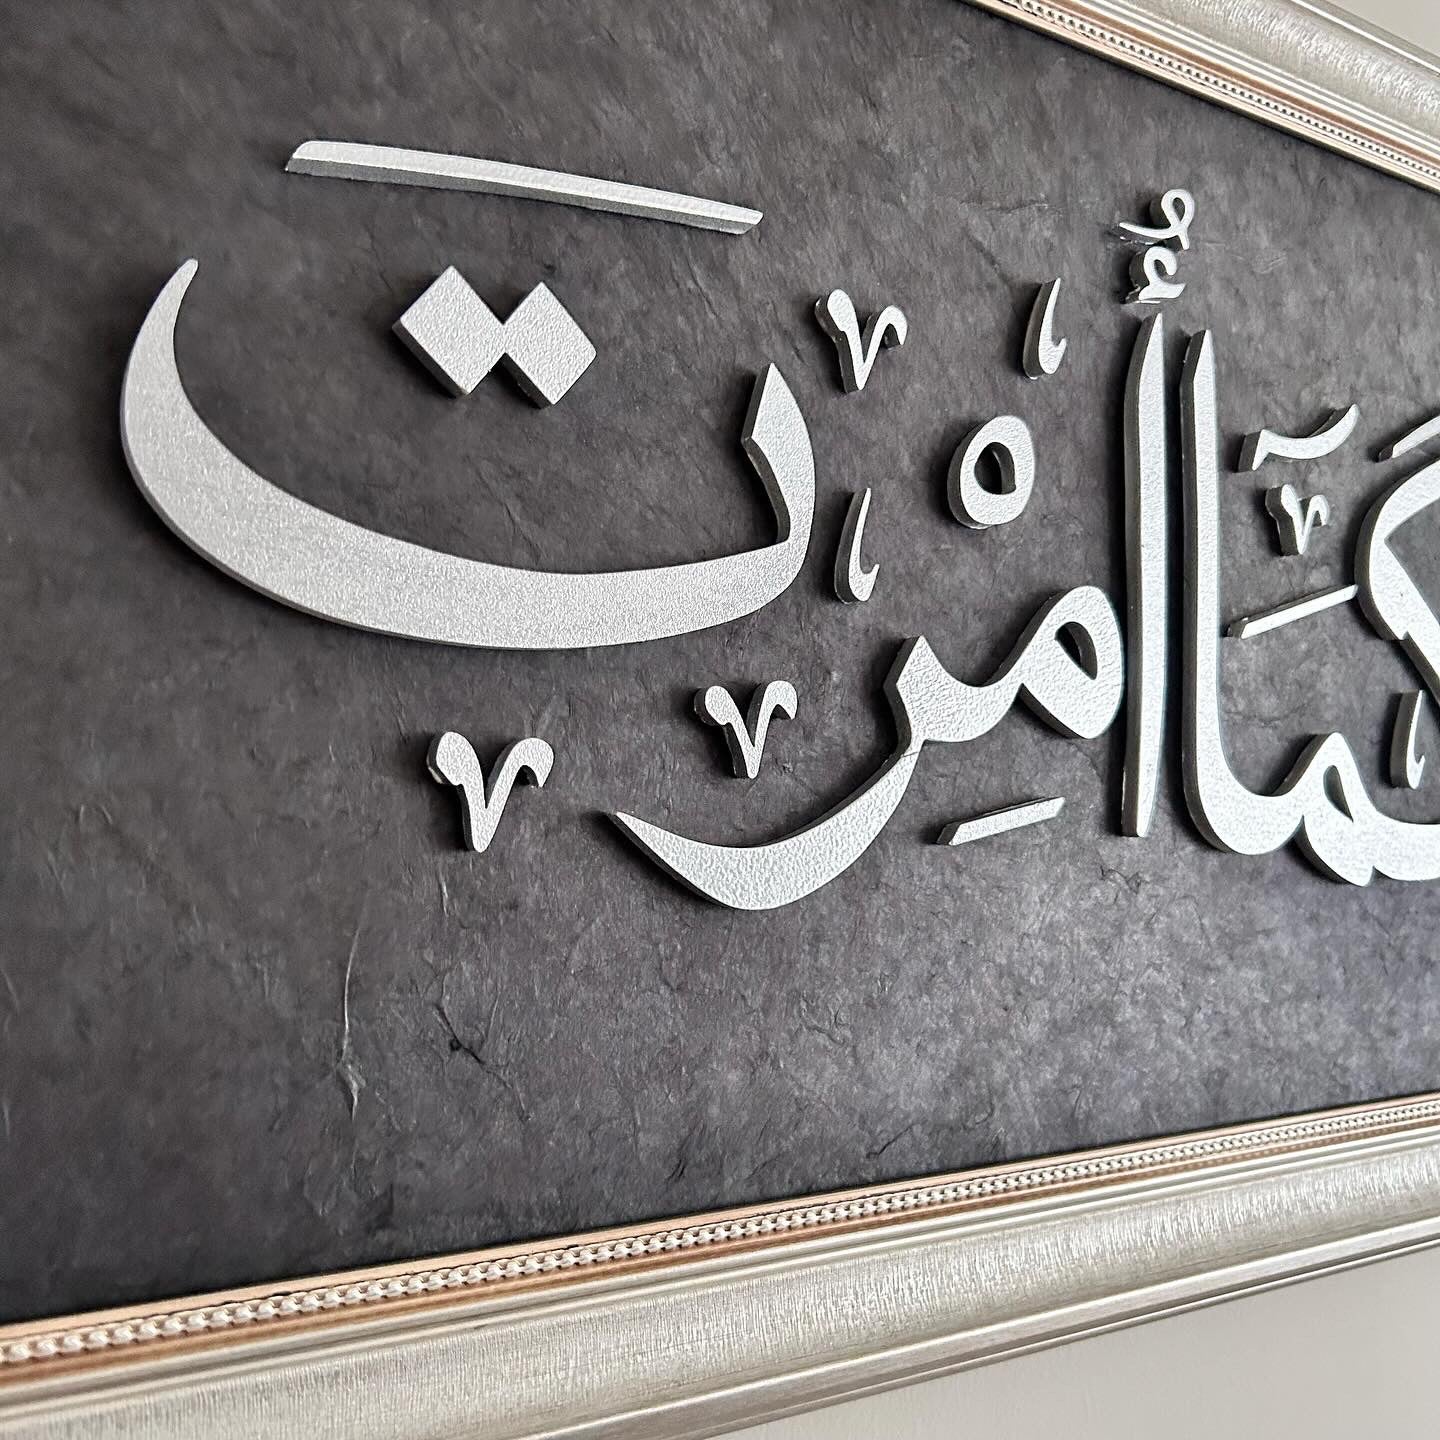 كَمَٓا أُمِرْتَ